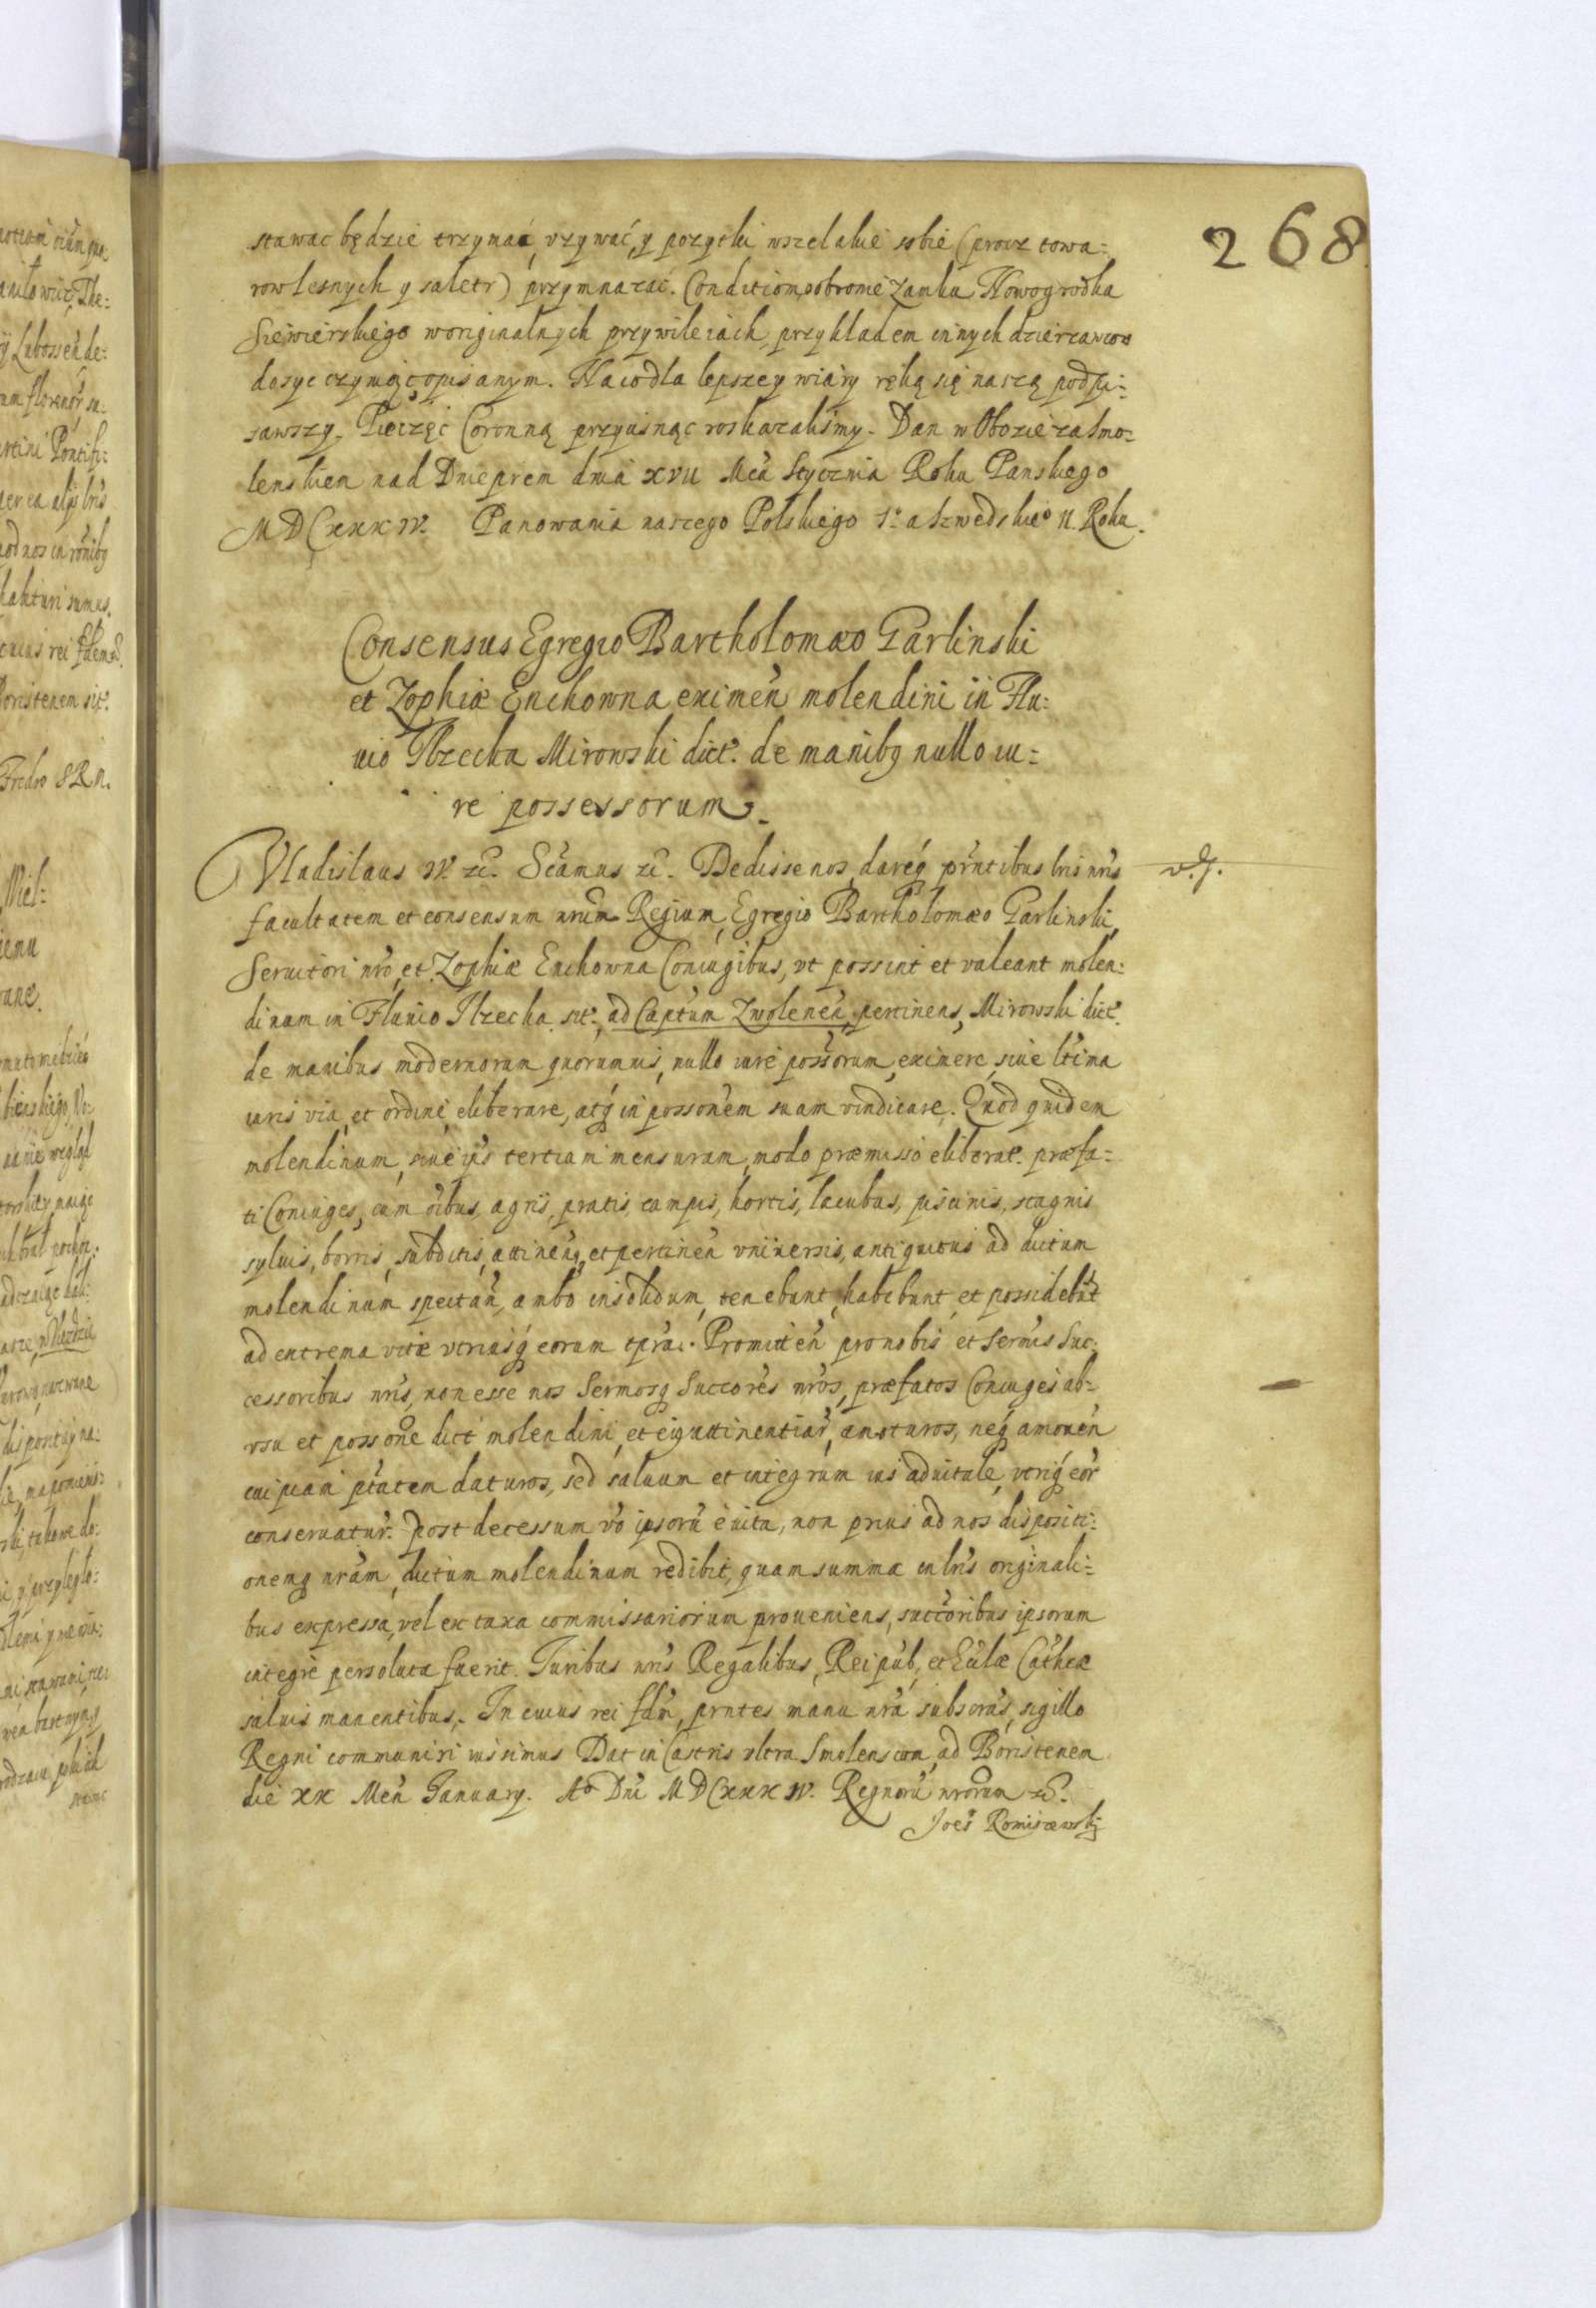 268
stawac będzie trzymać, vzywać, y pozytki wszelakie sobie (procz towa=
row lesnych y saletr) przymnazać. Conditiom, o obronie Zamku Nowogrodka
Siewierskiego w originalnych przywileiach, przykładem innych dzierzawcow
dosyc czyniąc opisanym. Na co dla lepszey wiary ręką się naszą podpi=
sawszy. Pieczęć Coronną przycisnąc roskazalismy. Dan w Obozie za Smo=
lenskiem nad Dnieprem dnia XVII Mca Stycznia Roku Panskiego
MDCXXXIV. Panowania naszego Polskiego 1º a Szwedskieº II. Roku.
Consensus Egregio Bartholomæo Garlinski
et Zophiæ Enchowna eximen̄ molendini in Flu=
uio Ilzecka Mirowski dict. de manibq nullo iu=
re possessorum.
Vladislaus IV. etc. Sčamus etc. Dedisse nos, dareq́ prn̄tibus lris nris
v. J.
facultatem et consensum nrum Regium, Egregio Bartholomæo Garlinski,
Seruitori nro, et Zophiæ Enchowna Coniugibus, vt possint et valeant molen=
dinum in Fluuio Ilzecka sit. ad Captum Zwolenen̄, pertinens, Mirowski dict.
de manibus modernorum quorumuis, nullo iure poss̄orum, eximere, siue ltima
iuris via, et ordine, eliberare, atq́ in possonem suam vindicare. Quod quidem
molendinum, siue ip̄s tertiam mensuram, modo præmisso eliberat. præfa=
ti Coniuges, cum oibus, agris, pratis, campis, hortis, lacubus, piscinis, stagnis
syluis, borris, subditis, attinen̄q, et pertinen̄ vniuersis, antiquitus ad dictum
molendinum spectan̄, ambo insolidum, tenebunt, habebunt, et possidebūt
ad extrema vitæ vtriusq́ eorum tpra. Promitten̄ pro nobis et Sermis Suc=
cessoribus nris, non esse nos Sermosq Succores nros, præfatos Coniuges ab=
vsu et possone dict molendini, et eiq attinentiar̄, amoturos, neq́ amouen̄
cuipiam ptatem daturos, sed saluum et integrum ius aduitale, vtriq́ eor
conseruatur. Post decessum vo ipsorū e vita, non prius ad nos dispositi=
onemq nram, dictum molendinum redibit, quam summa in lris originali=
bus expressa, vel ex taxa commissariorum proueniens, succoribus ipsorum
integre persoluta fuerit. Iuribus nris Regalibus, Reipub, et Eclæ Cathcæ
saluis manentibus. In cuius rei fdm, prntes manu nra subscras, sigillo
Regni communiri iussimus Dat in Castris vltra Smolenscum, ad Boristenem
die XX Men̄ Ianuary. Aº Dni MDCXXXIV. Regnorū nrorum etc.
Joēs Romiszewskj